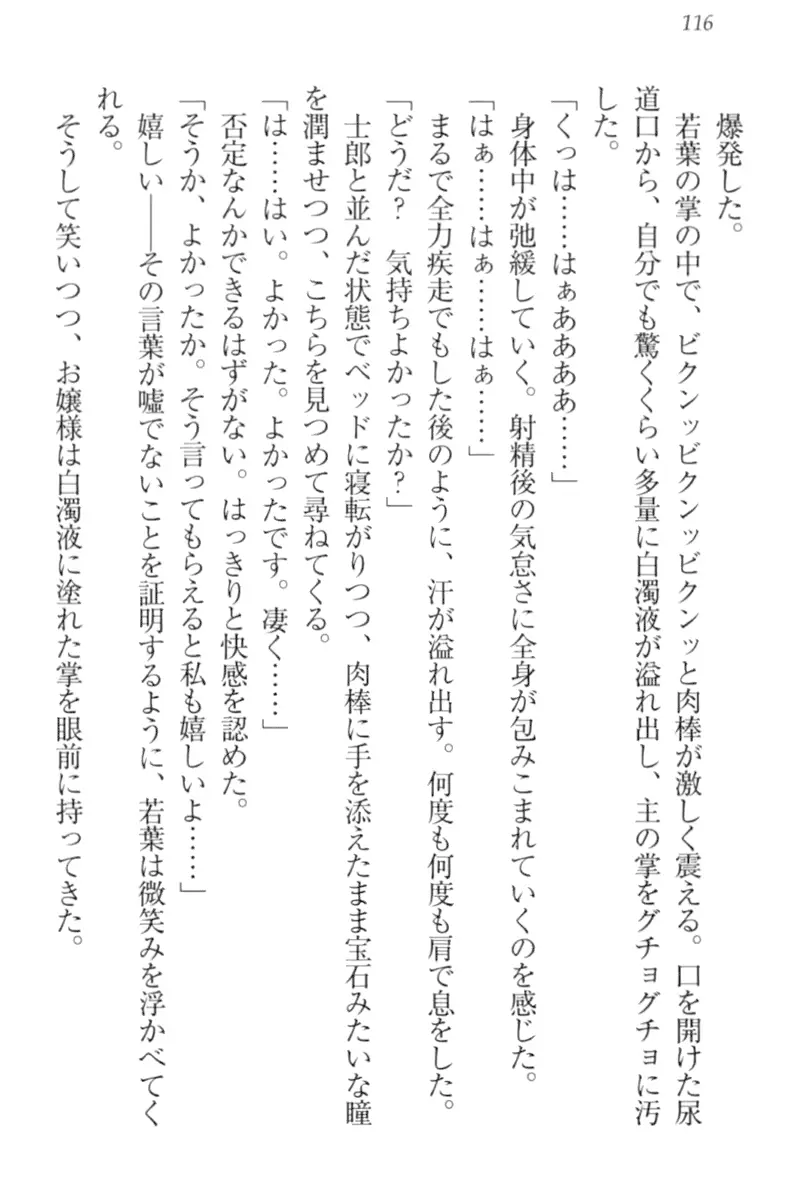 116
爆発した。
若葉の掌の中で、ビクンッビクンッビクンッと肉棒が激しく震える。口を開けた尿
道口から、自分でも驚くくらい多量に白濁液が溢れ出し、主の掌をグチョグチョに汚
した。
「くっは……はぁあああ……」
身体中が弛緩していく。射精後の気怠さに全身が包みこまれていくのを感じた。
「はぁ……はぁ……はぁ……」
まるで全力疾走でもした後のように、汗が溢れ出す。何度も何度も肩で息をした。
「どうだ？　気持ちよかったか？」
士郎と並んだ状態でベッドに寝転がりつつ、肉棒に手を添えたまま宝石みたいな瞳
を潤ませつつ、こちらを見つめて尋ねてくる。
「は……はい。よかった。よかったです。凄く……」
否定なんかできるはずがない。はっきりと快感を認めた。
「そうか、よかったか。そう言ってもらえると私も嬉しいよ……」
嬉しい――その言葉が嘘でないことを証明するように、若葉は微笑みを浮かべてく
れる。
そうして笑いつつ、お嬢様は白濁液に塗れた掌を眼前に持ってきた。